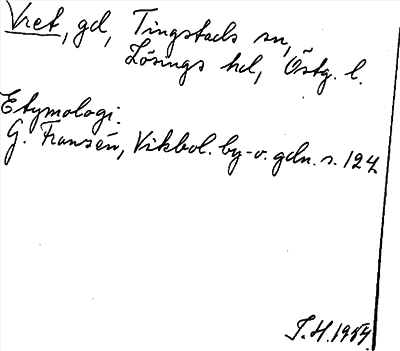 Vret, gd, Tingstads sn,
Lösings hd, Östg. l.
Etymologi.
G. Franzén, Vikbol. by- o. gdn. s. 124